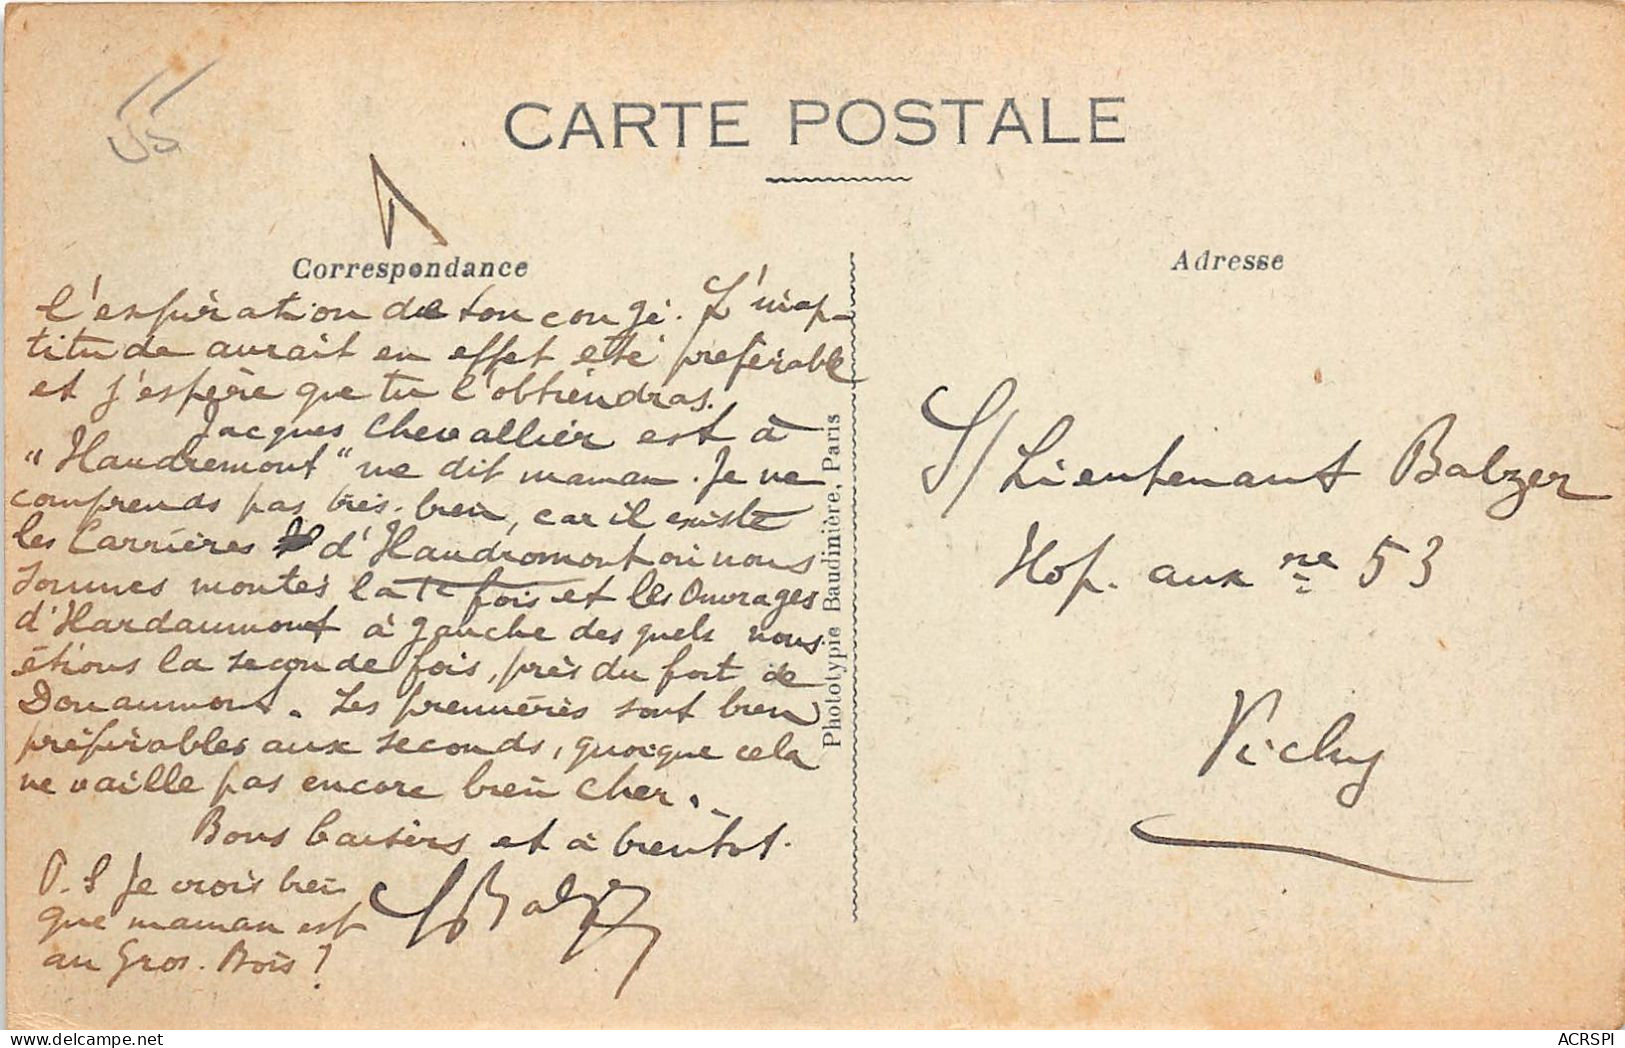 CARTE POSTALE
Correspondance
l'expiration de ton congé. L'inap-
titude aurait en effet été préférable
et j'espère que tu l'obtiendras.
Jacques Chevallier est à
"Haudremont" me dit maman. Je ne
comprends pas très bien, car il existe
les Carrières d'Haudromont où nous
sommes montés la 1e fois et les Ouvrages
d'Hardaumont à gauche desquels nous
étions la seconde fois, près du fort de
Douaumont. Les premières sont bien
préférables aux seconds, quoique cela
ne vaille pas encore bien cher.
Bons baisers et à bientôt.
P.S Je crois bien
que maman est
au Gros-Bois?
Balzer
Photolypie Baudinière, Paris
Adresse
S/Lieutenant Balzer
Hop. aux re 53
Vichy
ACRSPI